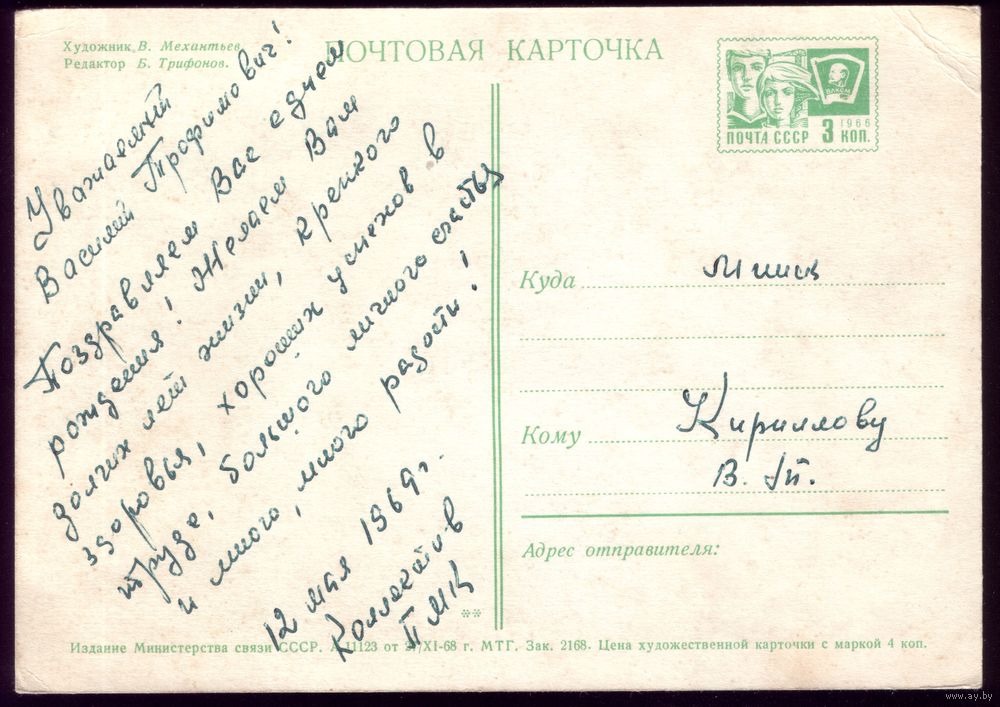 Художник В. Механтьев
Редактор Б. Трифонов.
ПОЧТОВАЯ КАРТОЧКА
ВЛКСМ
1966
ПОЧТА СССР 3 КОП.
Уважаемый
Василий Трофимович!
Поздравляем Вас с днем
рождения! Желаем Вам
долгих лет жизни, крепкого
здоровья, хороших успехов в
труде, большого личного счастья
и много, много радости!
12 мая 1969 г.
Коллектив
Куда Минск
Кому Кириллову
В. Т.
Адрес отправителя:
**
Издание Министерства связи СССР. А 11123 от 27/XI-68 г. МТГ. Зак. 2168. Цена художественной карточки с маркой 4 коп.
www.ay.by